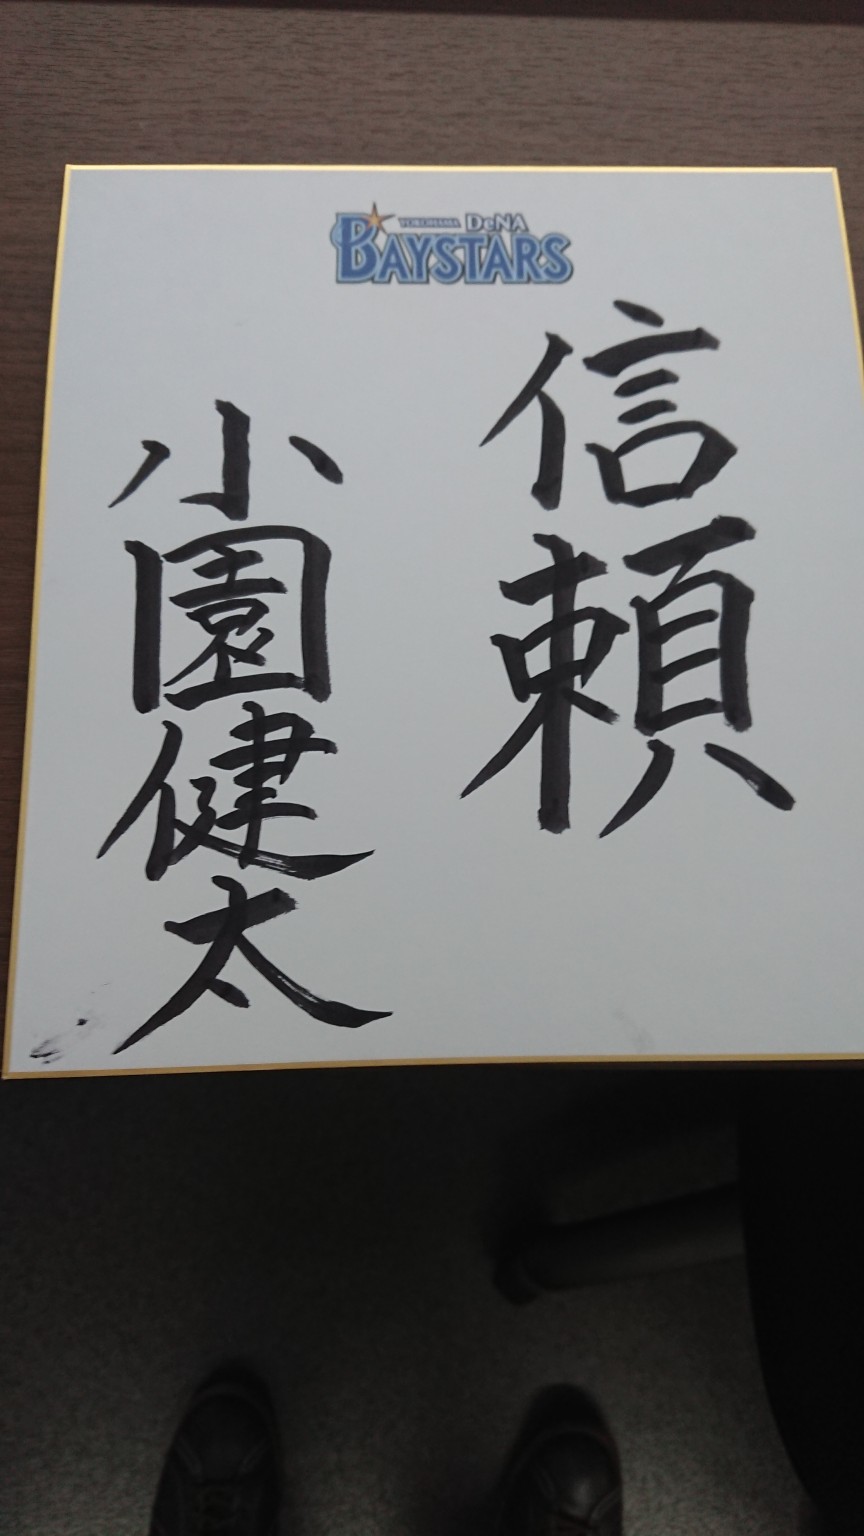 YOKOHAMA DeNA
BAYSTARS
信頼
小園健太